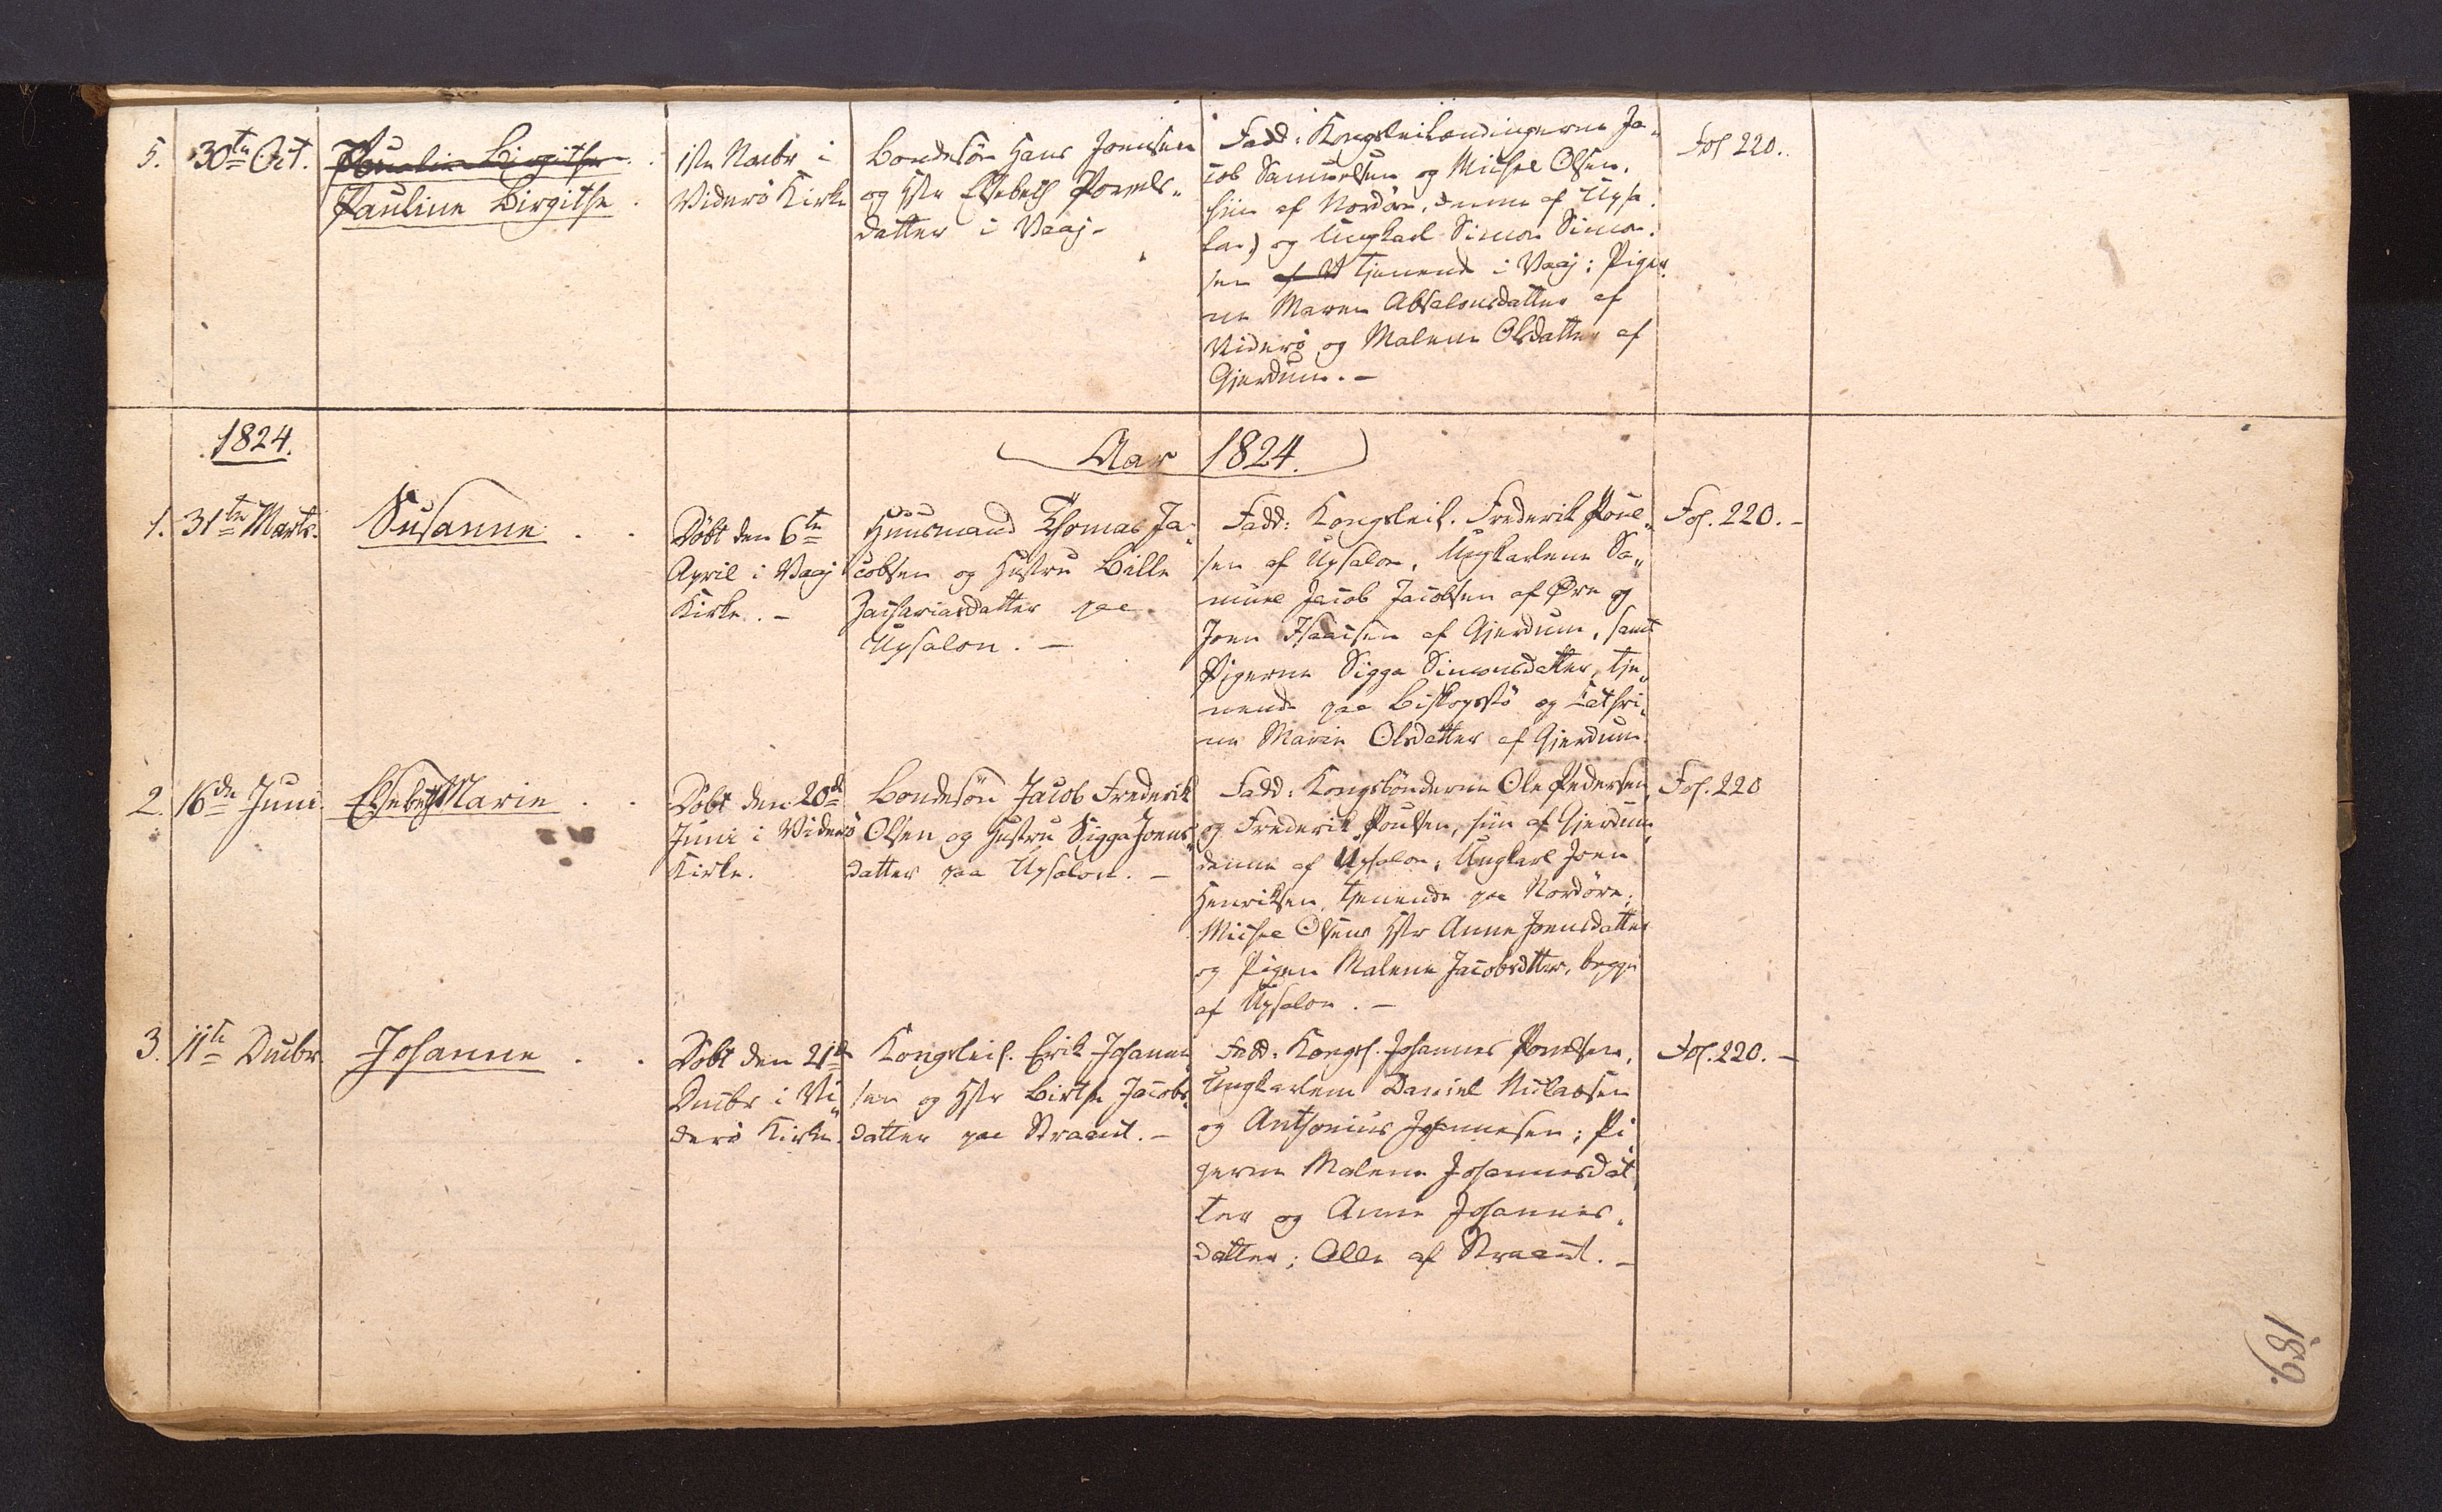 5.
30te Oct.
Pouline Birgithe
Pauline Birgithe
1ste Novbr i
Viderø Kirke
Bondesøn Hans Joensen
og Hstr Elsebeth Powels„
datter i Vaaj.
Fadd: Kongsleilændingerne Ja„
cob Samuelsen og Michel Olsen,
hiin af Nordøre, denne af Upsa„
lon) og Ungkarl Simon Simon„
sen af V tjenende i Vaaj; Piger„
ne Maren Absalonsdatter af
Viderø og Malene Olsdatter af
Gjerdum. –
Fol 220.
1824.
Aar 1824.
1.
31te Marts.
Susanne
Døbt den 6te
April i Vaaj
Kirke. –
Huusmand Thomas Ja„
cobsen og Hustru Bille
Zachariasdatter paa
Upsalon. –
Fadd: Kongsleil. Frederik Poul„
sen af Upsalon, Ungkarlene Sa„
muel Jacob Jacobsen af Øre og
Joen Isacsen af Gjerdum, samt
Pigerne Sigga Simonsdatter, tje„
nende paa Biskopstø og Cathri„
ne Marie Olsdatter af Gjerdum.
Fol. 220. –
2.
16de Juni.
Elsebeth Marie
Døbt den 20de
Juni i Viderø
Kirke.
Bondesøn Jacob Frederik
Olsen og Hustru Sigga Joens„
datter paa Upsalon. –
Fadd: Kongsbønderne Ole Pedersen
og Frederik Poulsen, hiin af Gjerdum,
denne af Upsalon; Ungkarl Joen
Henriksen, tjenende paa Nordøre;
Michel Olsens Hstr Anne Joensdatter
og Pigen Malene Jacobsdtter, begge
af Upsalon. –
Fol. 220
3.
11te Decbr.
Johanne
Døbt den 21de
Decbr i Vi„
derø Kirke.
Kongsleil. Erik Johannes„
sen og Hstr Birthe Jacobs„
datter paa Qvannesund. –
Fadd: Kongsl. Johannes Poulsen,
Ungkarlene Daniel Niclassen
og Anthonius Johannesen; Pi„
gerne Malene Johannesdat„
ter og Anne Johannes„
datter; Alle af
Fol. 220. –
189.